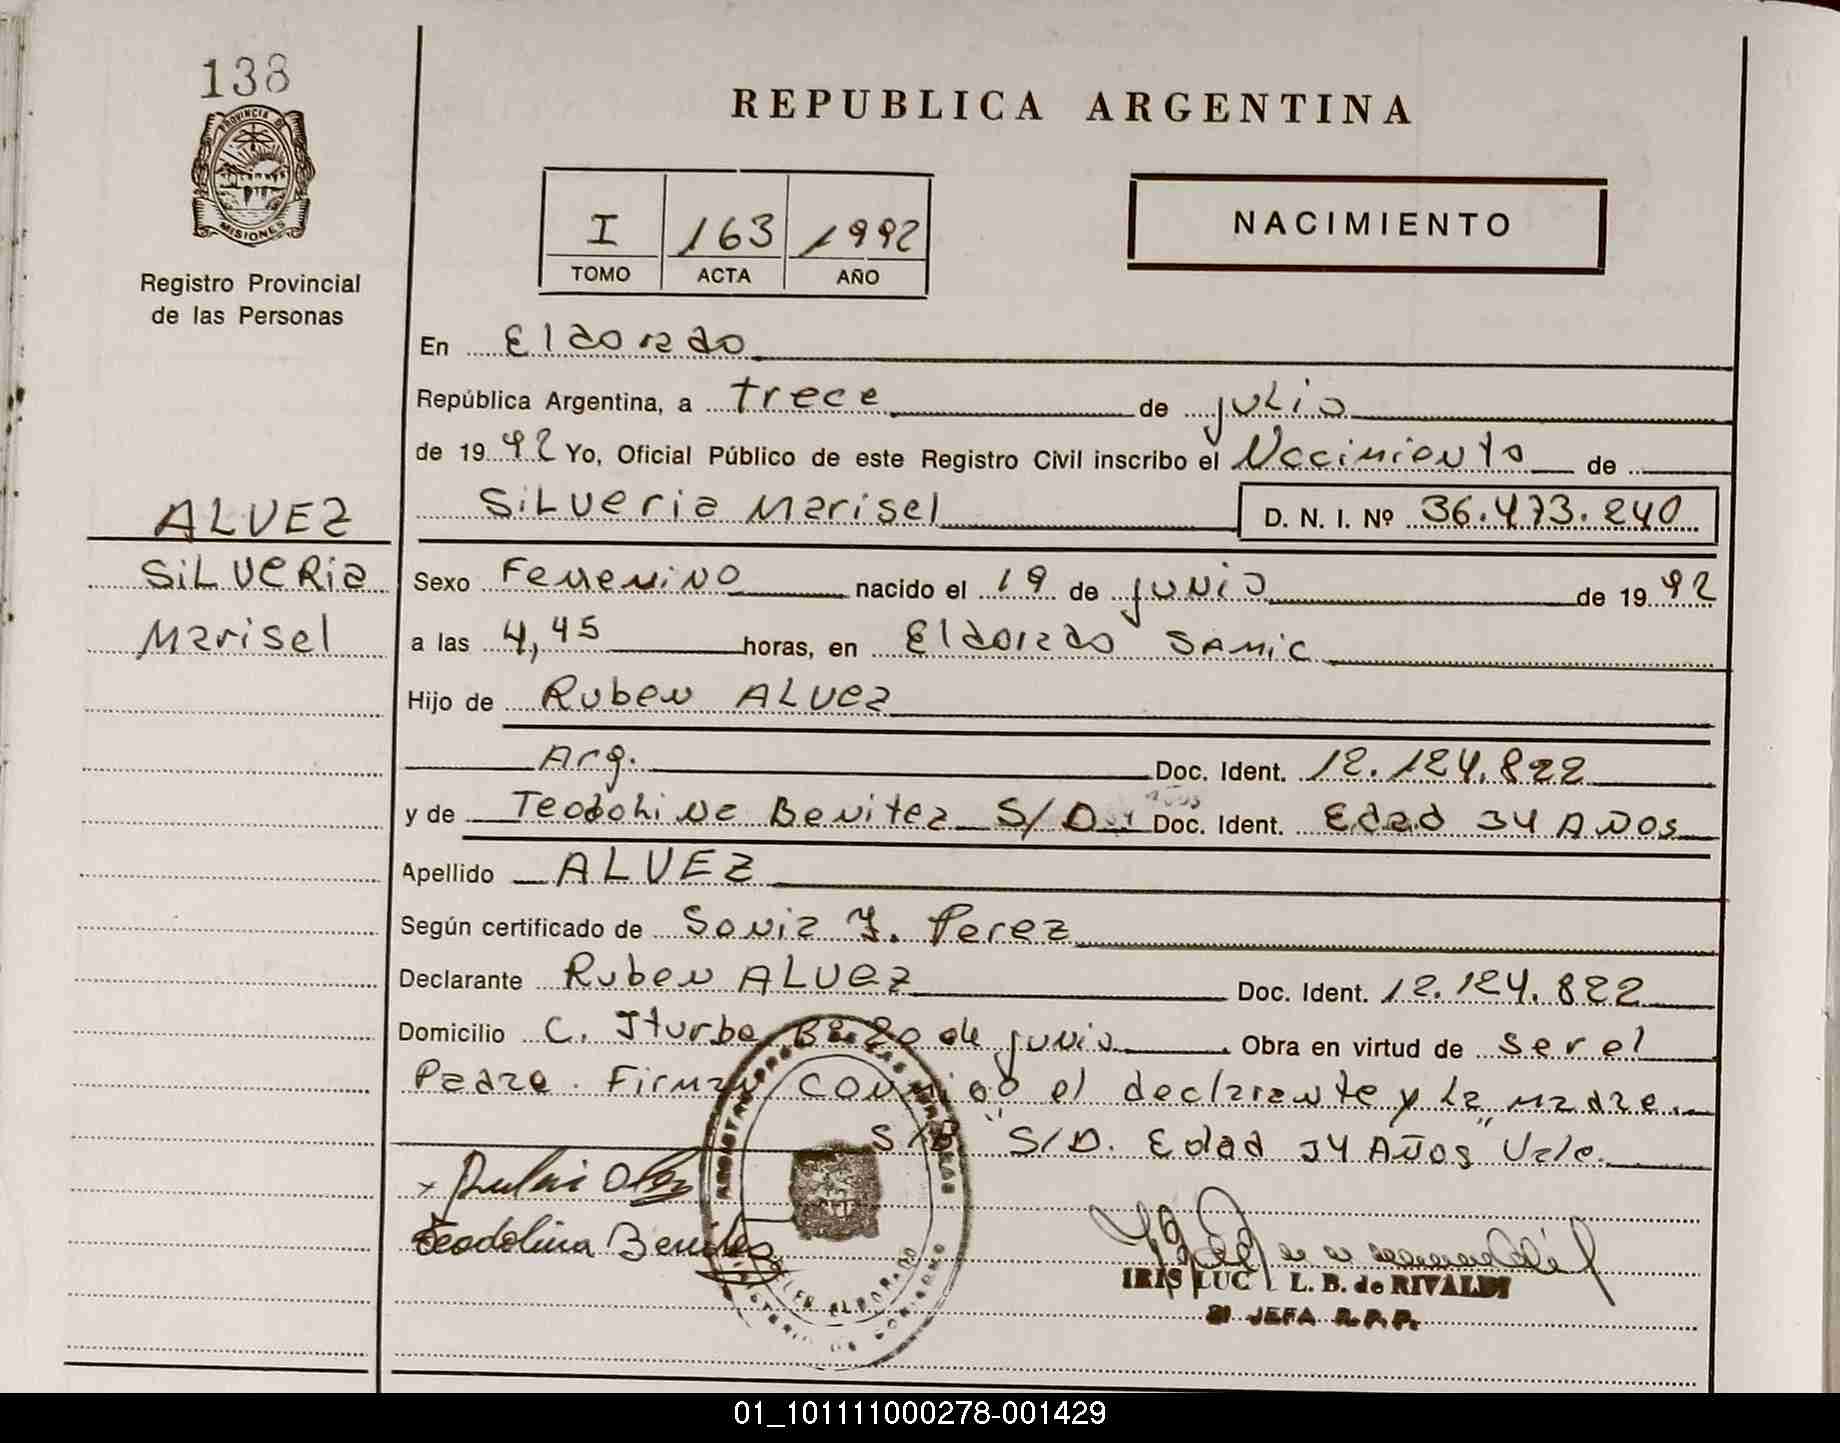 138
PROVINCIA DE
MISIONES
Registro Provincial
de las Personas
REPUBLICA ARGENTINA
I 163 1992
TOMO ACTA AÑO
NACIMIENTO
En Eldorado
República Argentina, a trece de julio
de 1992 Yo, Oficial Público de este Registro Civil inscribo el Nacimiento de
Silveria Marisel D. N. I. Nº 36.473.240
ALVEZ
SILVERia
Marisel
Sexo Femenino nacido el 19 de junio de 1992
a las 4,45 horas, en Eldorado SAMIC
Hijo de Ruben ALVez
Arg. Doc. Ident. 12.124.822
y de Teodolina Benitez S/D Doc. Ident. Edad 34 Años
Apellido ALVEZ
Según certificado de Sonia J. Perez
Declarante Ruben ALVez Doc. Ident. 12.124.822
Domicilio C. Iturbe Bº 20 de junio Obra en virtud de ser el
Padre. Firman conmigo el declarante y la madre.
S/B "S/D. Edad 34 Años" Vale.
Teodolina Benitez
IRIS LUC L. B. de RIVALDI
JEFA R.P.P.
01_101111000278-001429